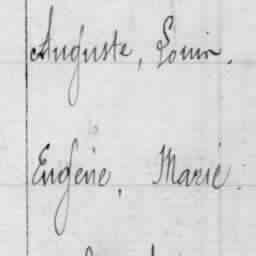 Auguste, Louis.
Eugène, Marie.